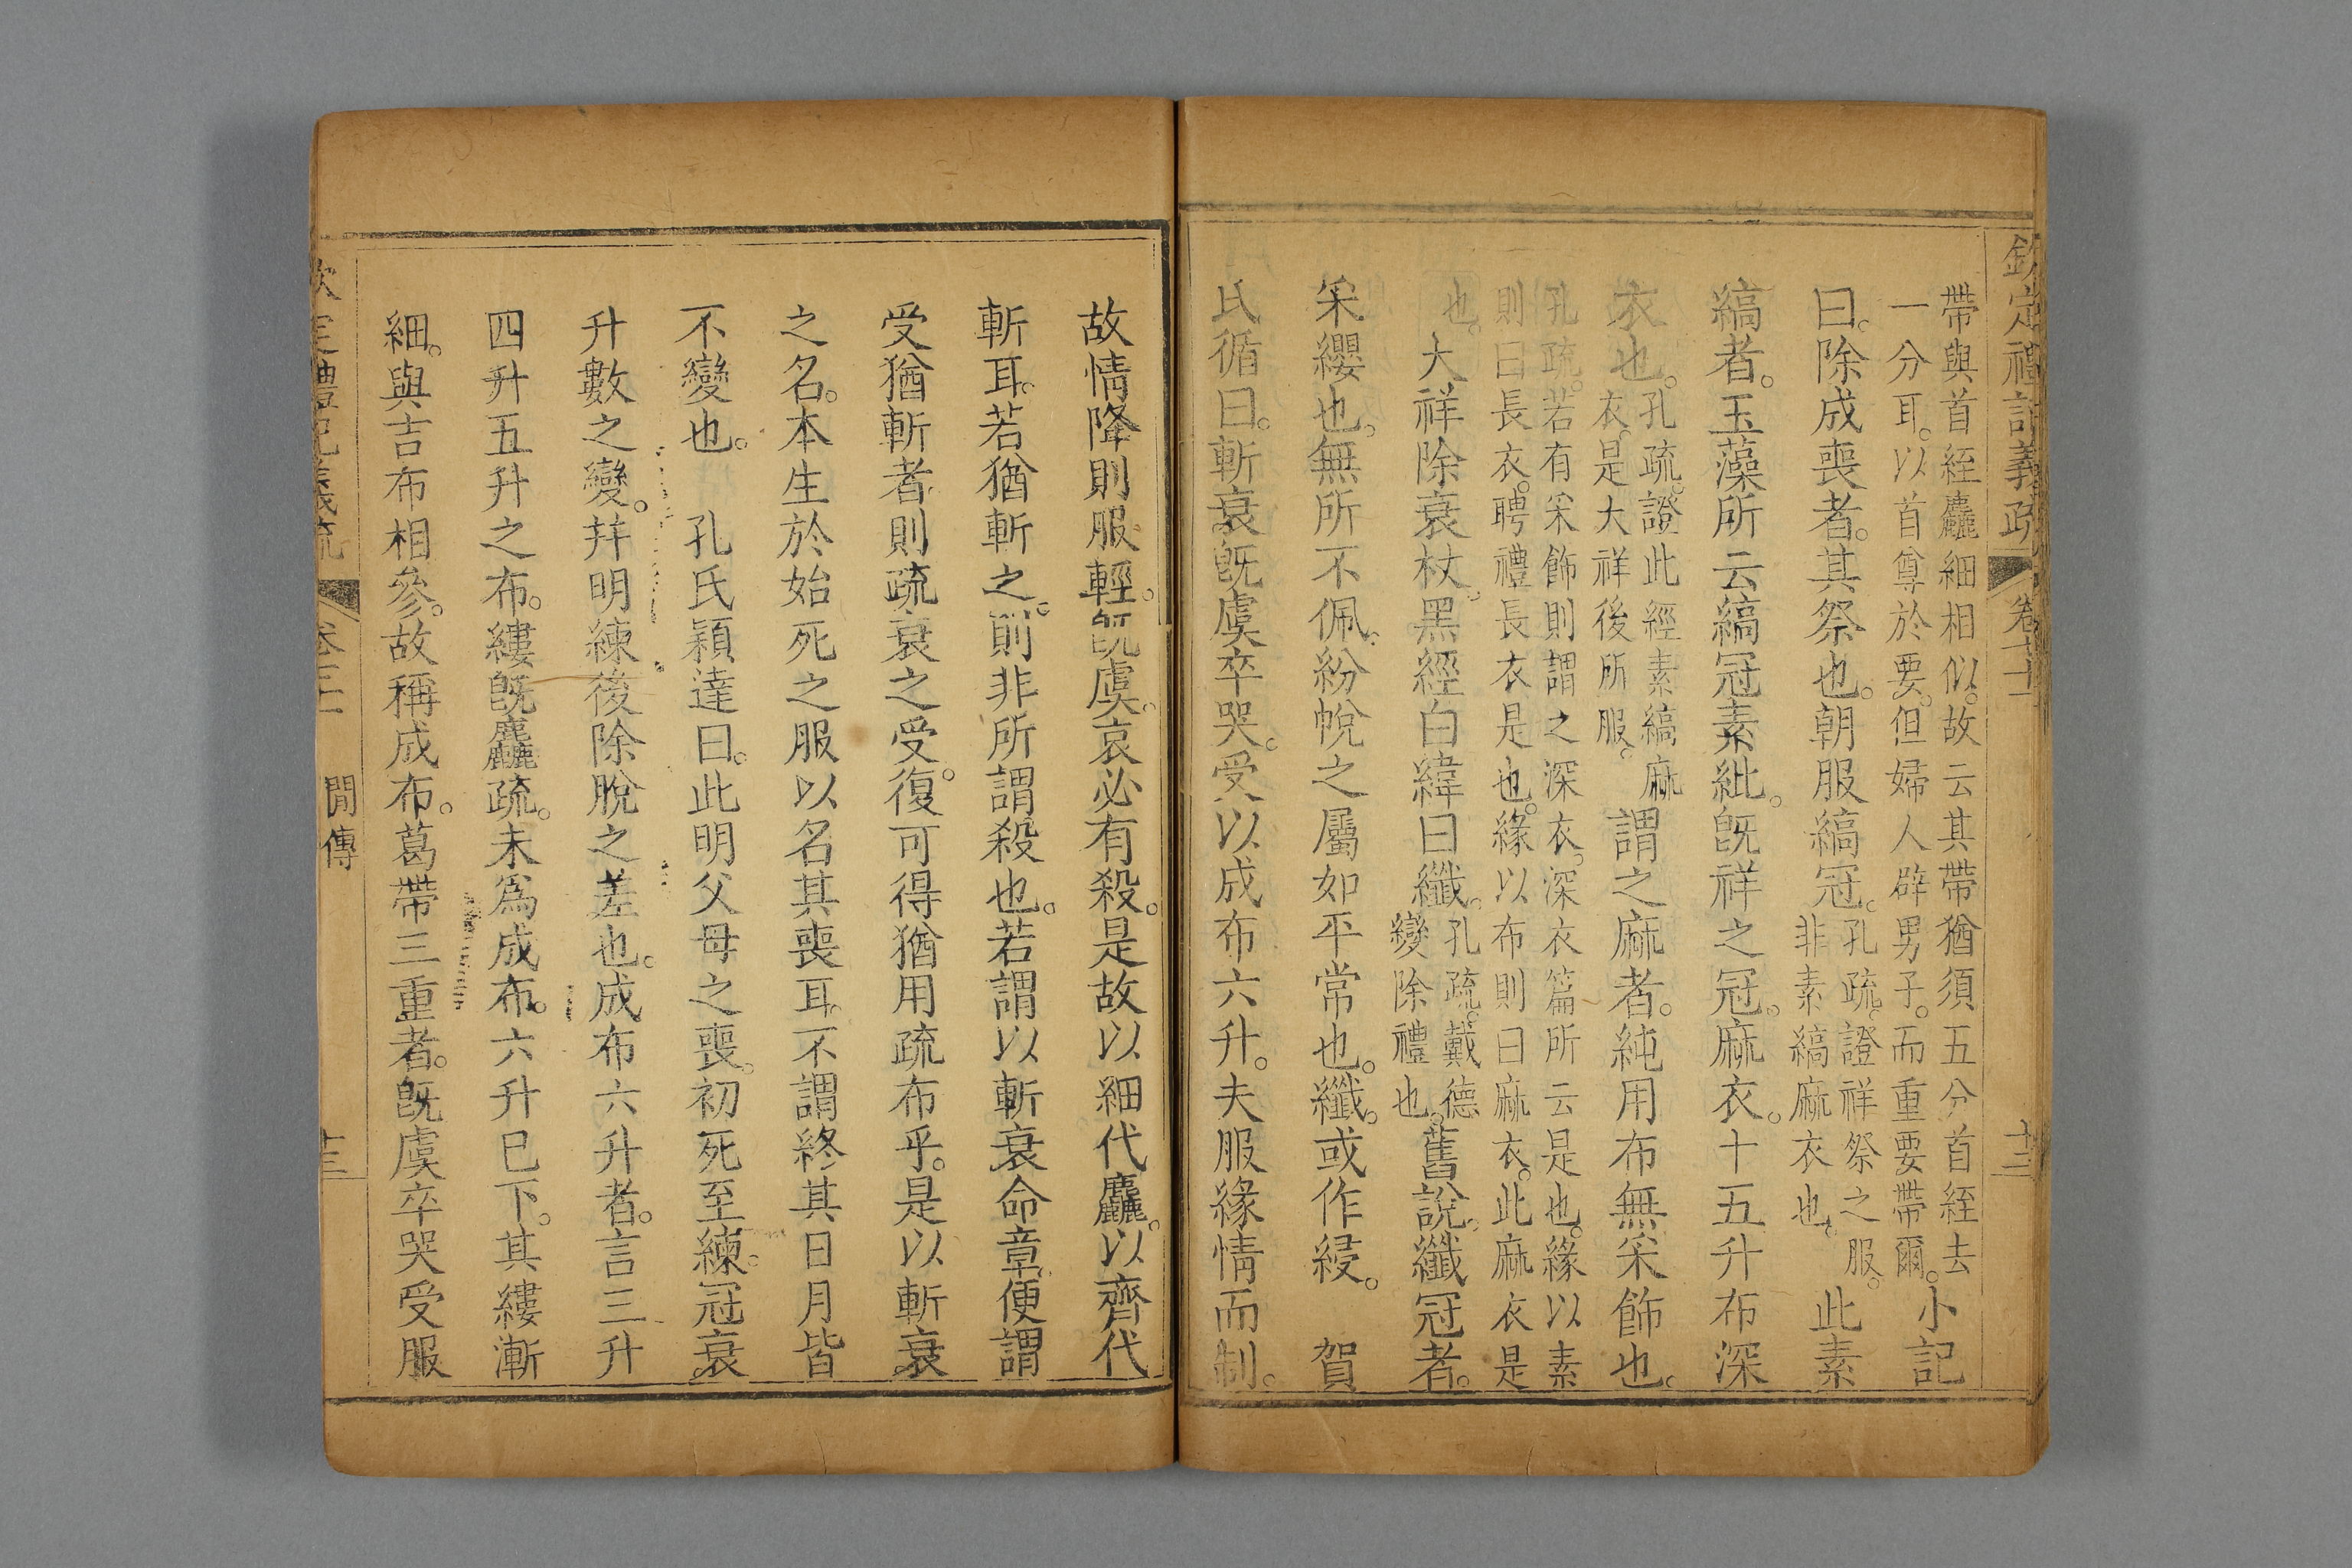 欽定禮記義疏 卷七十一 十三
帶與首絰麤細相似。故云其帶猶須五分首絰去
一分耳。以首尊於要。但婦人辟男子。而重要帶爾。小記
曰。除成喪者。其祭也。朝服縞冠。孔疏。證祥祭之服。非素縞麻衣也。此素
縞者。玉藻所云縞冠素紕。旣祥之冠。麻衣。十五升布深
衣也。孔疏。證此經素縞麻衣。是大祥後所服。謂之麻者。純用布無采飾也。
孔疏。若有采飾則謂之深衣。深衣篇所云是也。緣以素
則曰長衣。聘禮長衣是也。緣以布則曰麻衣。此麻衣是
也。大祥除衰杖。黑經白緯曰纖。孔疏。戴德變除禮也。舊說。纖冠者。
采纓也。無所不佩。紛帨之屬如平常也。纖。或作綅。 賀
氏循曰。斬衰旣虞卒哭。受以成布六升。夫服緣情而制。
故情降則服輕。旣虞。哀必有殺。是故以細代麤。以齊代
斬耳。若猶斬之。則非所謂殺也。若謂以斬衰命章。便謂
受猶斬者。則疏衰之受。復可得猶用疏布乎。是以斬衰
之名。本生於始死之服以名其喪耳。不謂終其日月皆
不變也。 孔氏穎達曰。此明父母之喪。初死至練。冠衰
升數之變。幷明練後除脫之差也。成布六升者。言三升
四升五升之布。縷旣麤疏。未爲成布。六升已下。其縷漸
細。與吉布相參。故稱成布。葛帶三重者。旣虞卒哭受服
欽定禮記義疏 卷七十一 閒傳 十三